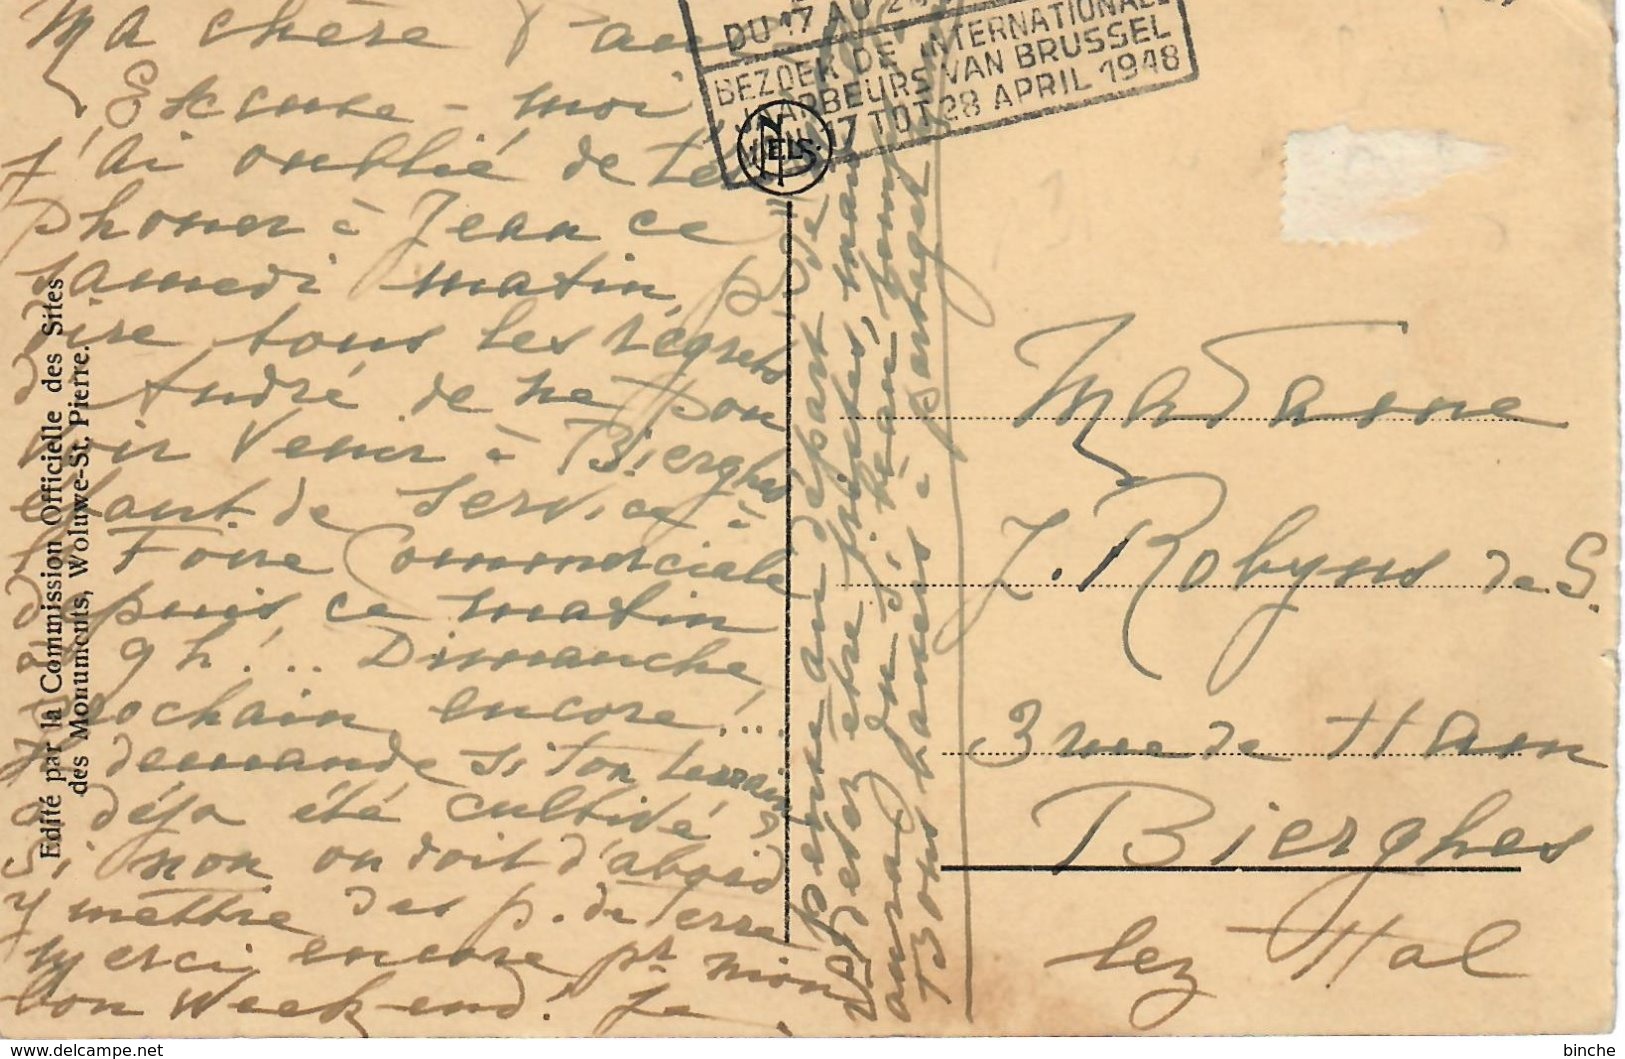 Ma chère
Excuse-moi,
j'ai oublié de télé
phoner à Jean ce
samedi matin, pr
dire tous les regrets
d'André de ne pou
voir venir à Bierghes
étant de service à
Foire Commerciale
depuis ce matin
9 h!... Dimanche
prochain encore!...
demande si ton terrain
a déjà été cultivé?
Si non on doit d'abord
y mettre des p. de terre
Merci encore pr mon
bon week-end! Je
pense au départ de
être prêtes, mais
aura du si beau
Bons baisers à partager
DU 17 AU 2
BEZOEK DE INTERNATIONALE
JAARBEURS VAN BRUSSEL
VAN 17 TOT 28 APRIL 1948
NELS
Edité par la Commission Officielle des Sites
des Monuments, Woluwe-St. Pierre.
Madame
J. Robyns de S.
3 rue de Ham
Bierghes
lez Hal
https://www.delcampe.net
binche